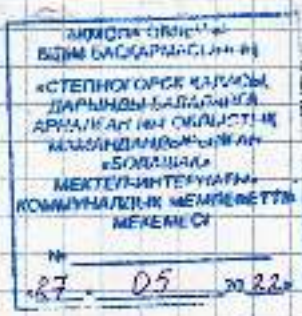 АҚМОЛА ОБЛЫСЫ
БІЛІМ БАСҚАРМАСЫНЫҢ
«СТЕПНОГОРСК ҚАЛАСЫ,
ДАРЫНДЫ БАЛАЛАРҒА
АРНАЛҒАН ОБЛЫСТЫҚ
МАМАНДАНДЫРЫЛҒАН
«БОЛАШАҚ»
МЕКТЕП-ИНТЕРНАТЫ»
КОММУНАЛДЫҚ МЕМЛЕКЕТТІК
МЕКЕМЕСІ
№
«27 » 05 20 22